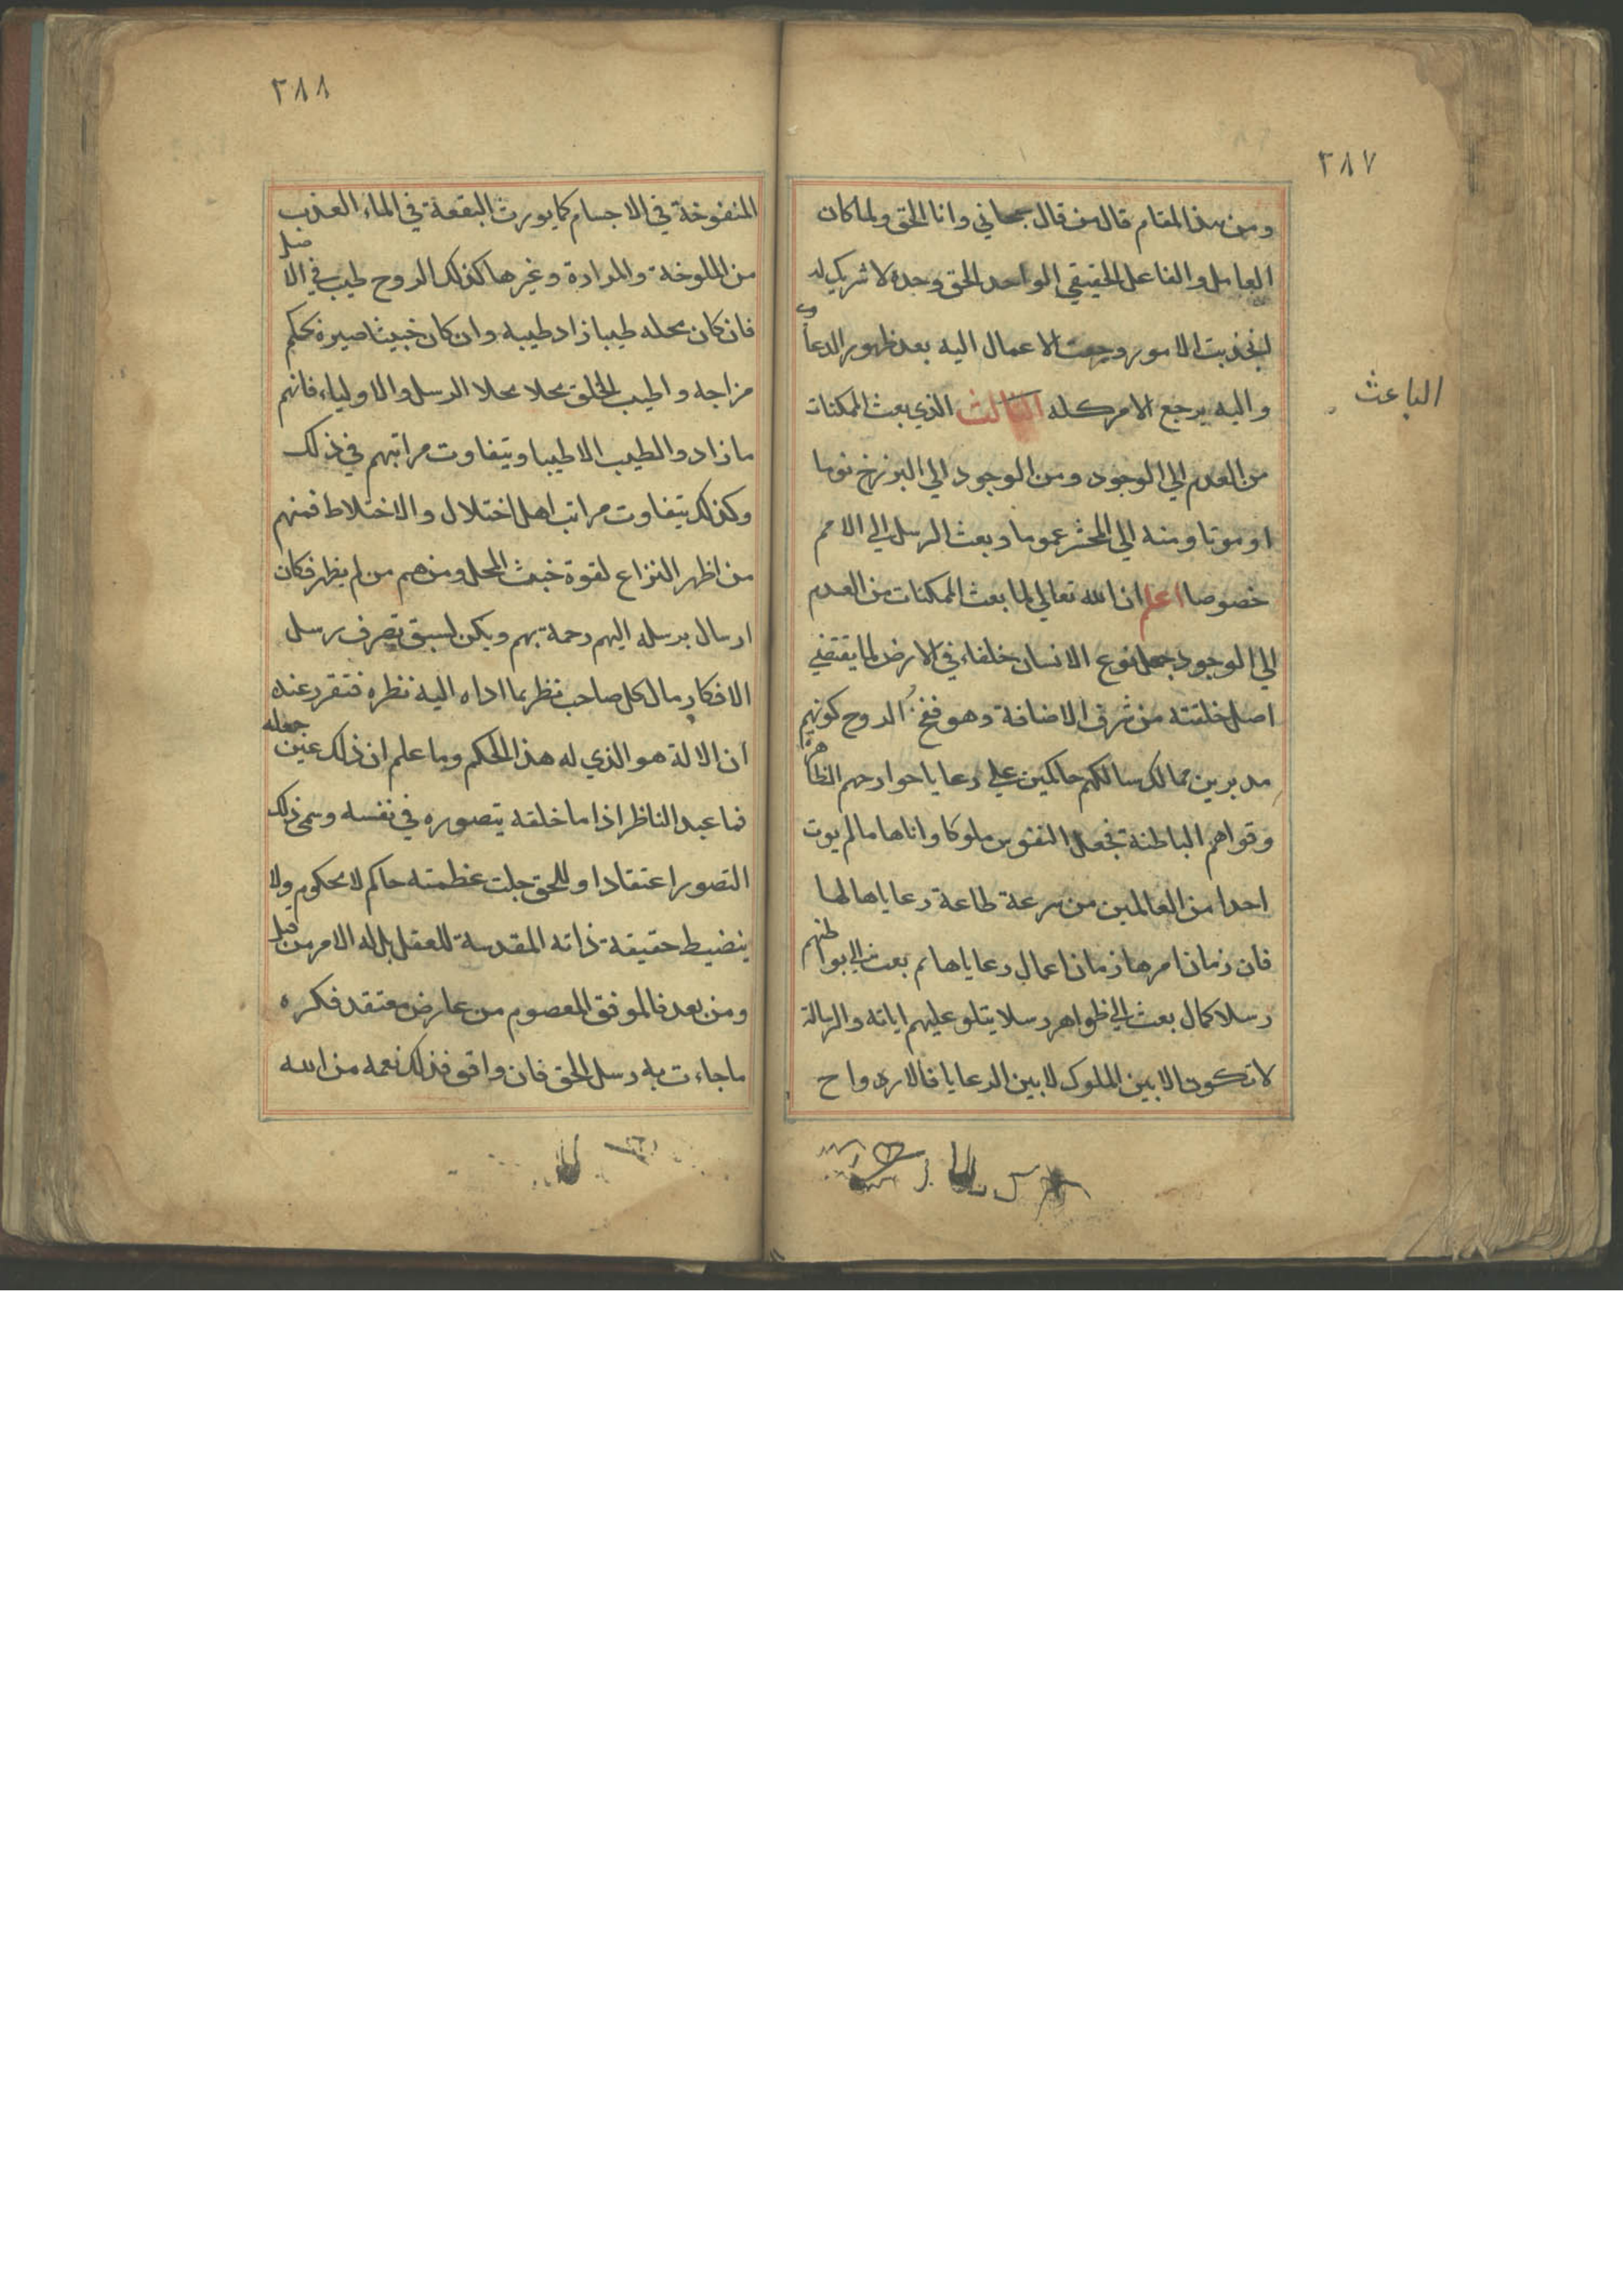 ٢٨٧
ومن هذا المقام قال من قال سبحاني وانا الحق ولما كان
العامل والفاعل الحقيقي الواحد الحق وحده لا شريك له
انجذبت الامور ورجعت الاعمال اليه بعد ظهور الدعاوي
واليه يرجع الامر كله الثالث الذي بعث الممكنات
الباعث
من العدم الي الوجود ومن الوجود الي البرزخ نوما
او موتا ومنه الي المحشر عموما وبعث الرسل الي الامم
خصوصا اعلم ان الله تعالي لما بعث الممكنات من العدم
الي الوجود جعل نوع الانسان خلفاء في الارض لما يقتضي
اصل خلقته من شرف الاضافة وهو نفخ الروح كونهم
مدبرين ممالك سالكهم حاكمين علي رعايا جوارحهم الظاهرة
وقواهم الباطنة فجعل النفوس ملوكا واتاها ما لم يوت
احدا من العالمين من سرعة طاعة رعاياها لها
فان زمان امرها زمان اعمال رعاياها ثم بعث الي بواطنهم
رسلا كمال بعث الي ظواهر رسلا يتلو عليهم اياته والرسالة
لا تكون الا بين الملوك لا بين الرعايا فالارواح
٢٨٨
المنفوخة في الاجسام كما يورث البقعة في الماء العذب
من الملوخة والمرادة وغيرها كذلك الروح طيب في الاصل
فان كان محله طيبا زاد طيبه وان كان خبيثا صيره بحكم
مزاجه واطيب الخلق محلا محلا الرسل والاولياء فانهم
ما زادوا الطيب الا طيبا ويتفاوت مراتبهم في ذلك
وكذلك يتفاوت مراتب اهل اختلال والاختلاط فمنهم
من اظهر النزاع لقوة خبث المحل ومنهم من لم يظهر فكان
ارسال برسله اليهم رحمة بهم ويكن لسبق تصرف رسل
الافكار مال كل صاحب نظر بما اداه اليه نظره فتقرر عنده
ان الالة هو الذي له هذا الحكم وما علم ان ذلك عين جعله
فما عبد الناظر اذا ما خلقه يتصوره في نفسه وسمي ذلك
التصور اعتقادا وللحق جلت عظمته حاكم لا محكوم ولا
ينضبط حقيقة ذاته المقدسة للعقل بل له الامر من قبل
ومن بعد فالموفق المعصوم من عارض معتقد فكره
ما جاءت به رسل الحق فان وافق فذلك نعمه من الله